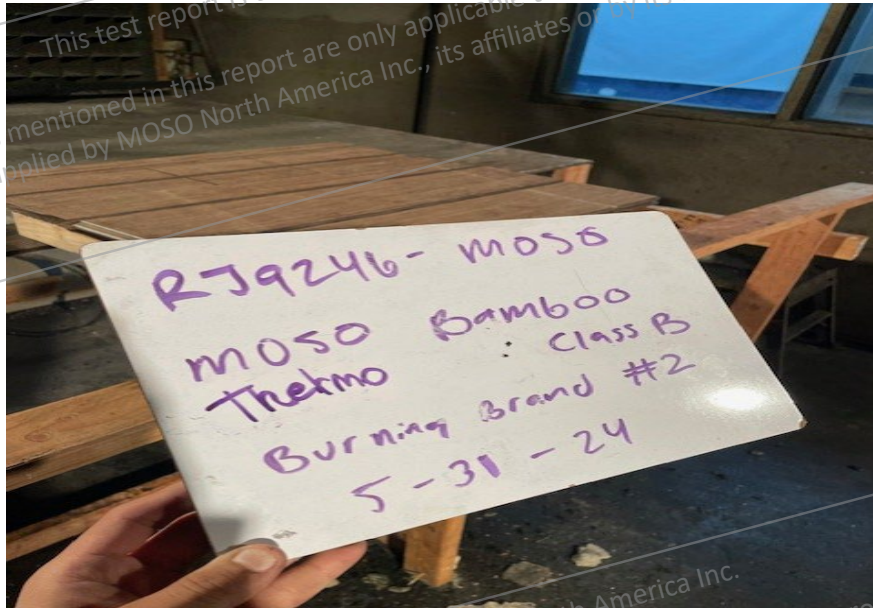 This test report is
mentioned in this report are only applicable
pplied by MOSO North America Inc., its affiliates or by
RJ9246- MOSO
MOSO Bamboo
Thermo : Class B
Burning Brand #2
5-31-24
h America Inc.